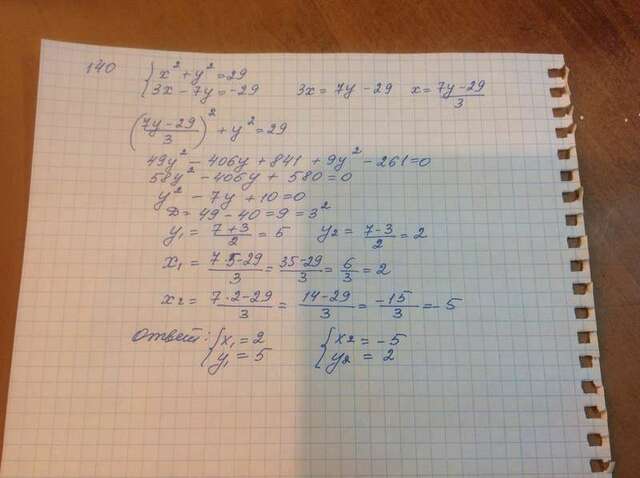 140 { x² + y² = 29
3x - 7y = -29 3x = 7y - 29 x = (7y - 29)/3
((7y - 29)/3)² + y² = 29
49y² - 406y + 841 + 9y² - 261 = 0
58y² - 406y + 580 = 0
y² - 7y + 10 = 0
D = 49 - 40 = 9 = 3²
y₁ = (7 + 3)/2 = 5 y₂ = (7 - 3)/2 = 2
x₁ = (7·5 - 29)/3 = (35 - 29)/3 = 6/3 = 2
x₂ = (7·2 - 29)/3 = (14 - 29)/3 = -15/3 = -5
Ответ: { x₁ = 2 { x₂ = -5
y₁ = 5 y₂ = 2